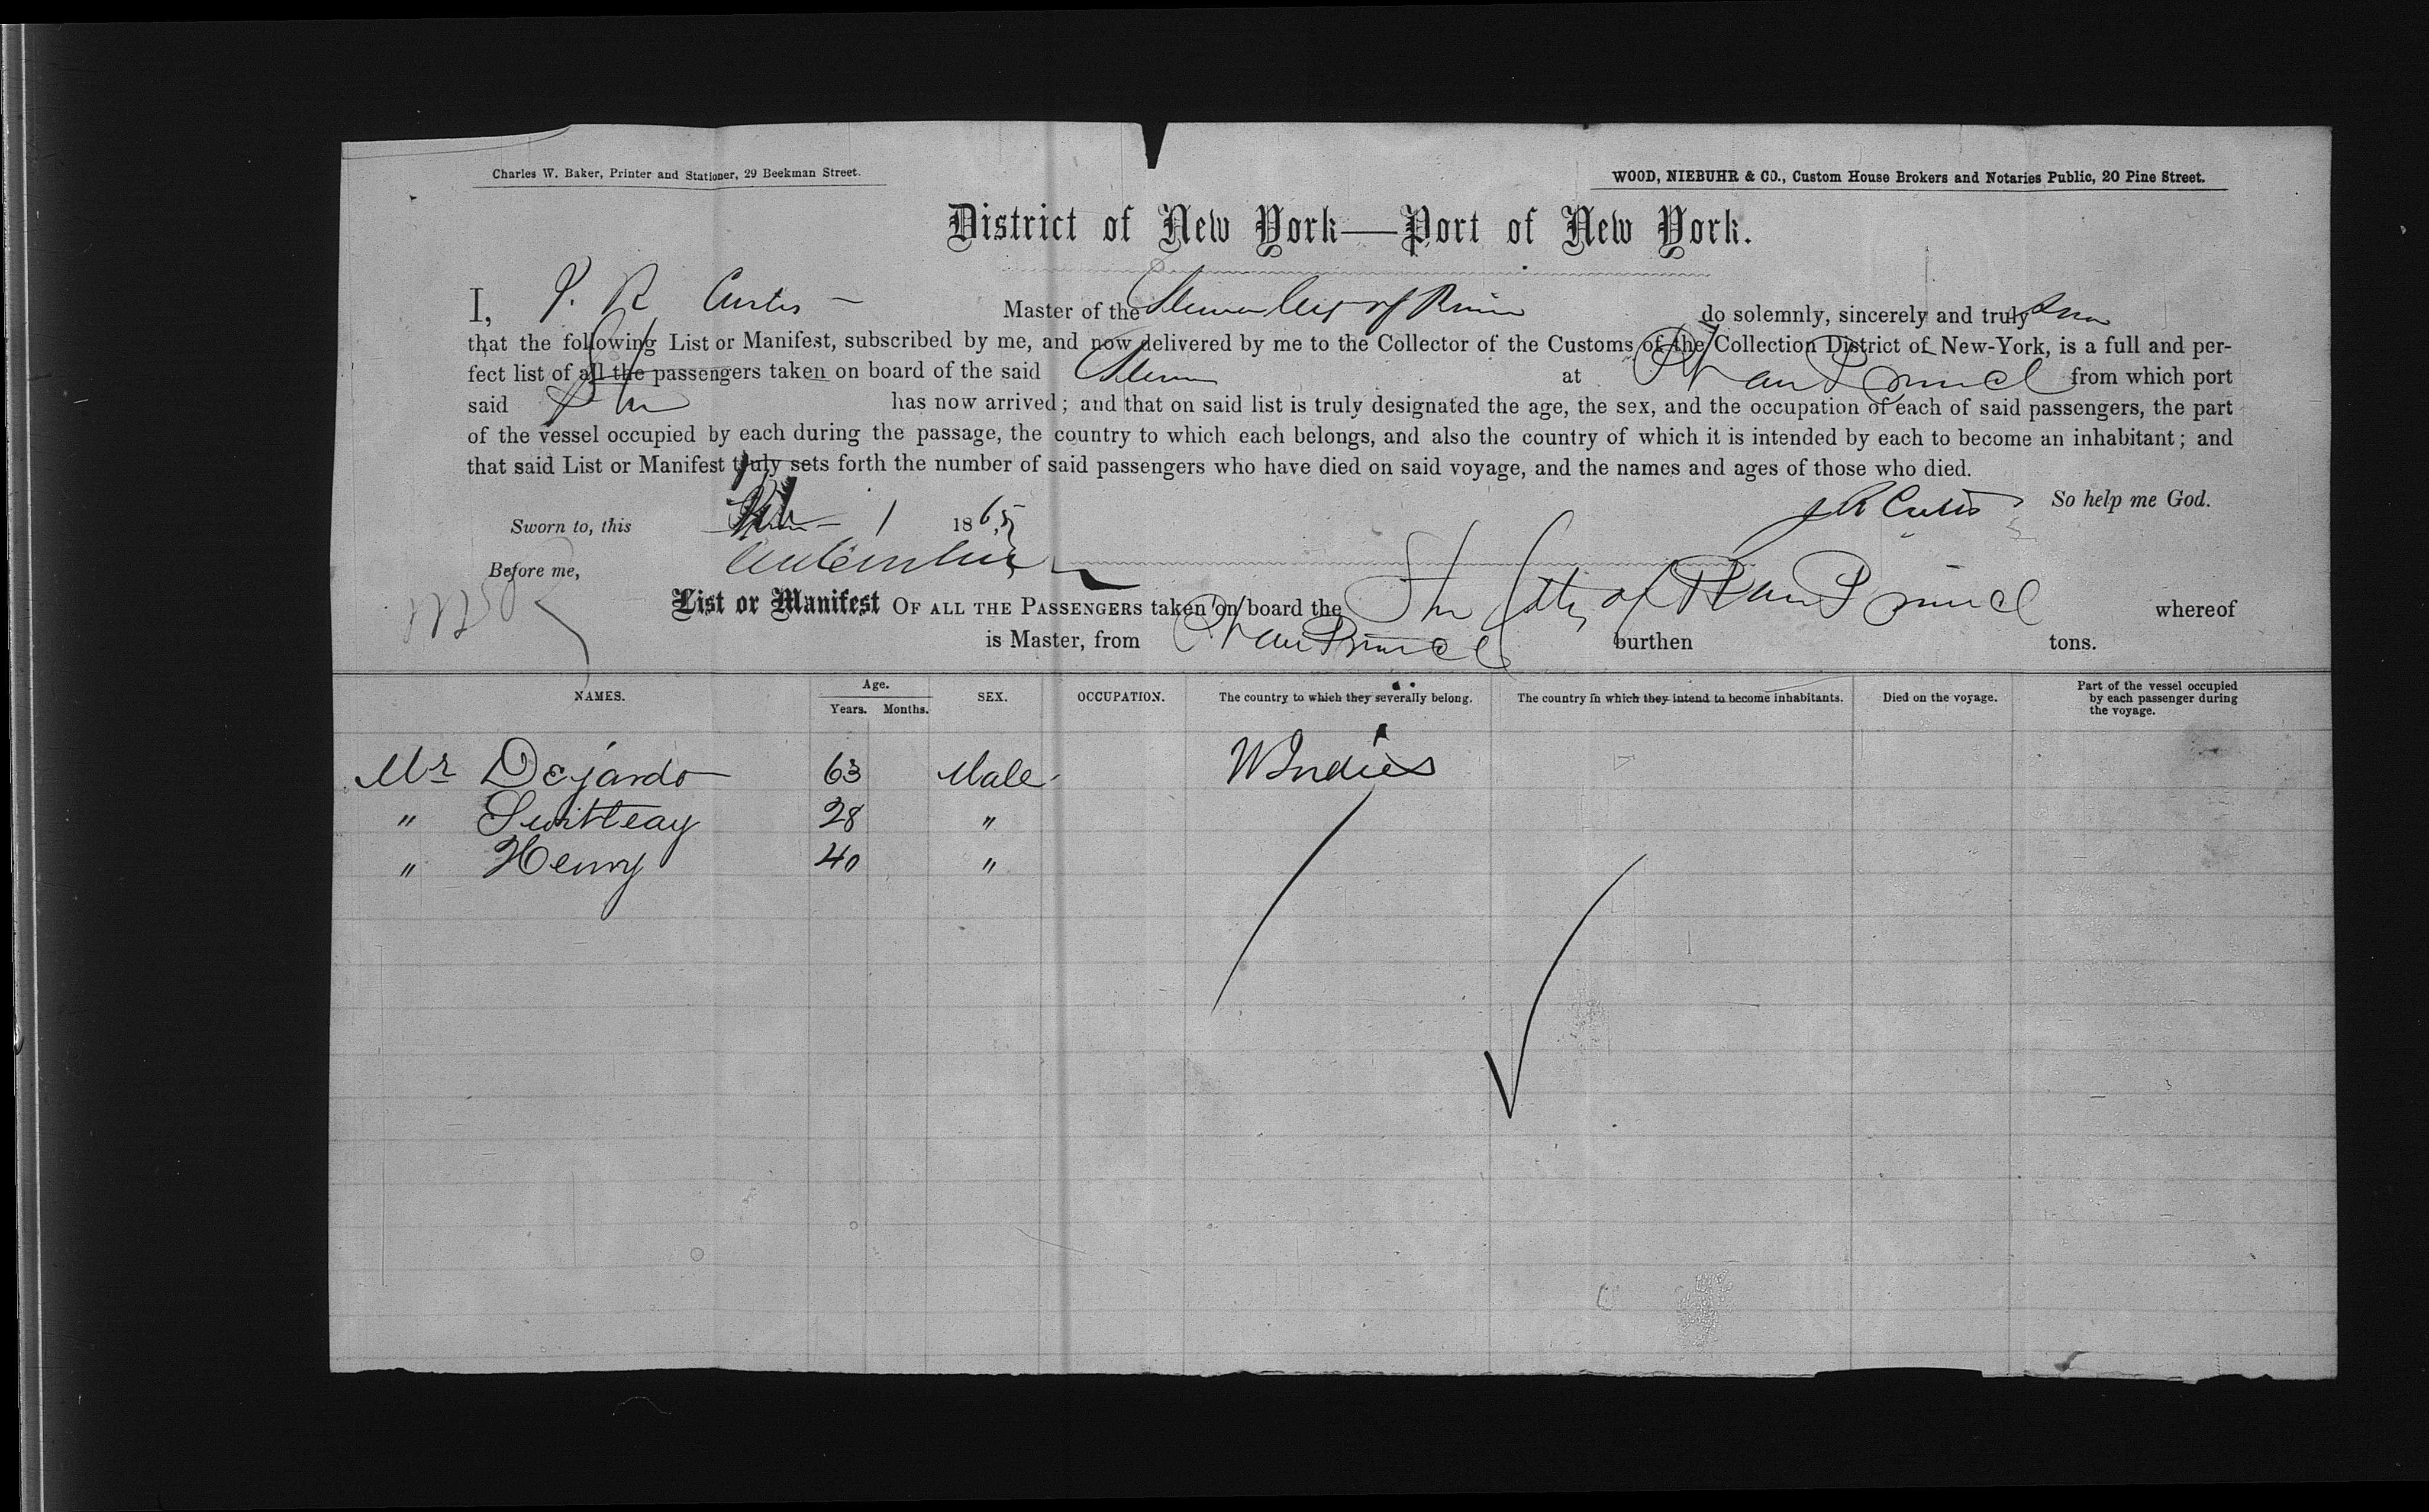 Charles W. Baker, Printer and Stationer, 29 Beekman Street.
WOOD, NIEBUHR & CO., Custom House Brokers and Notaries Public, 20 Pine Street.
District of New York—Port of New York.
I, J. R Curtis — Master of the City of do solemnly, sincerely and truly
that the following List or Manifest, subscribed by me, and now delivered by me to the Collector of the Customs of the Collection District of New-York, is a full and per-
fect list of all the passengers taken on board of the said at from which port
said has now arrived; and that on said list is truly designated the age, the sex, and the occupation of each of said passengers, the part
of the vessel occupied by each during the passage, the country to which each belongs, and also the country of which it is intended by each to become an inhabitant; and
that said List or Manifest truly sets forth the number of said passengers who have died on said voyage, and the names and ages of those who died.
J R Curtis So help me God.
Sworn to, this 1 1865
Before me,
List or Manifest OF ALL THE PASSENGERS taken on board the City of whereof
is Master, from burthen tons.
NAMES. Age. Years. Months. SEX. OCCUPATION. The country to which they severally belong. The country in which they intend to become inhabitants. Died on the voyage. Part of the vessel occupied by each passenger during the voyage.
Mr Dejardo 63 Male W Indies
" 28 "
" Henry 40 "